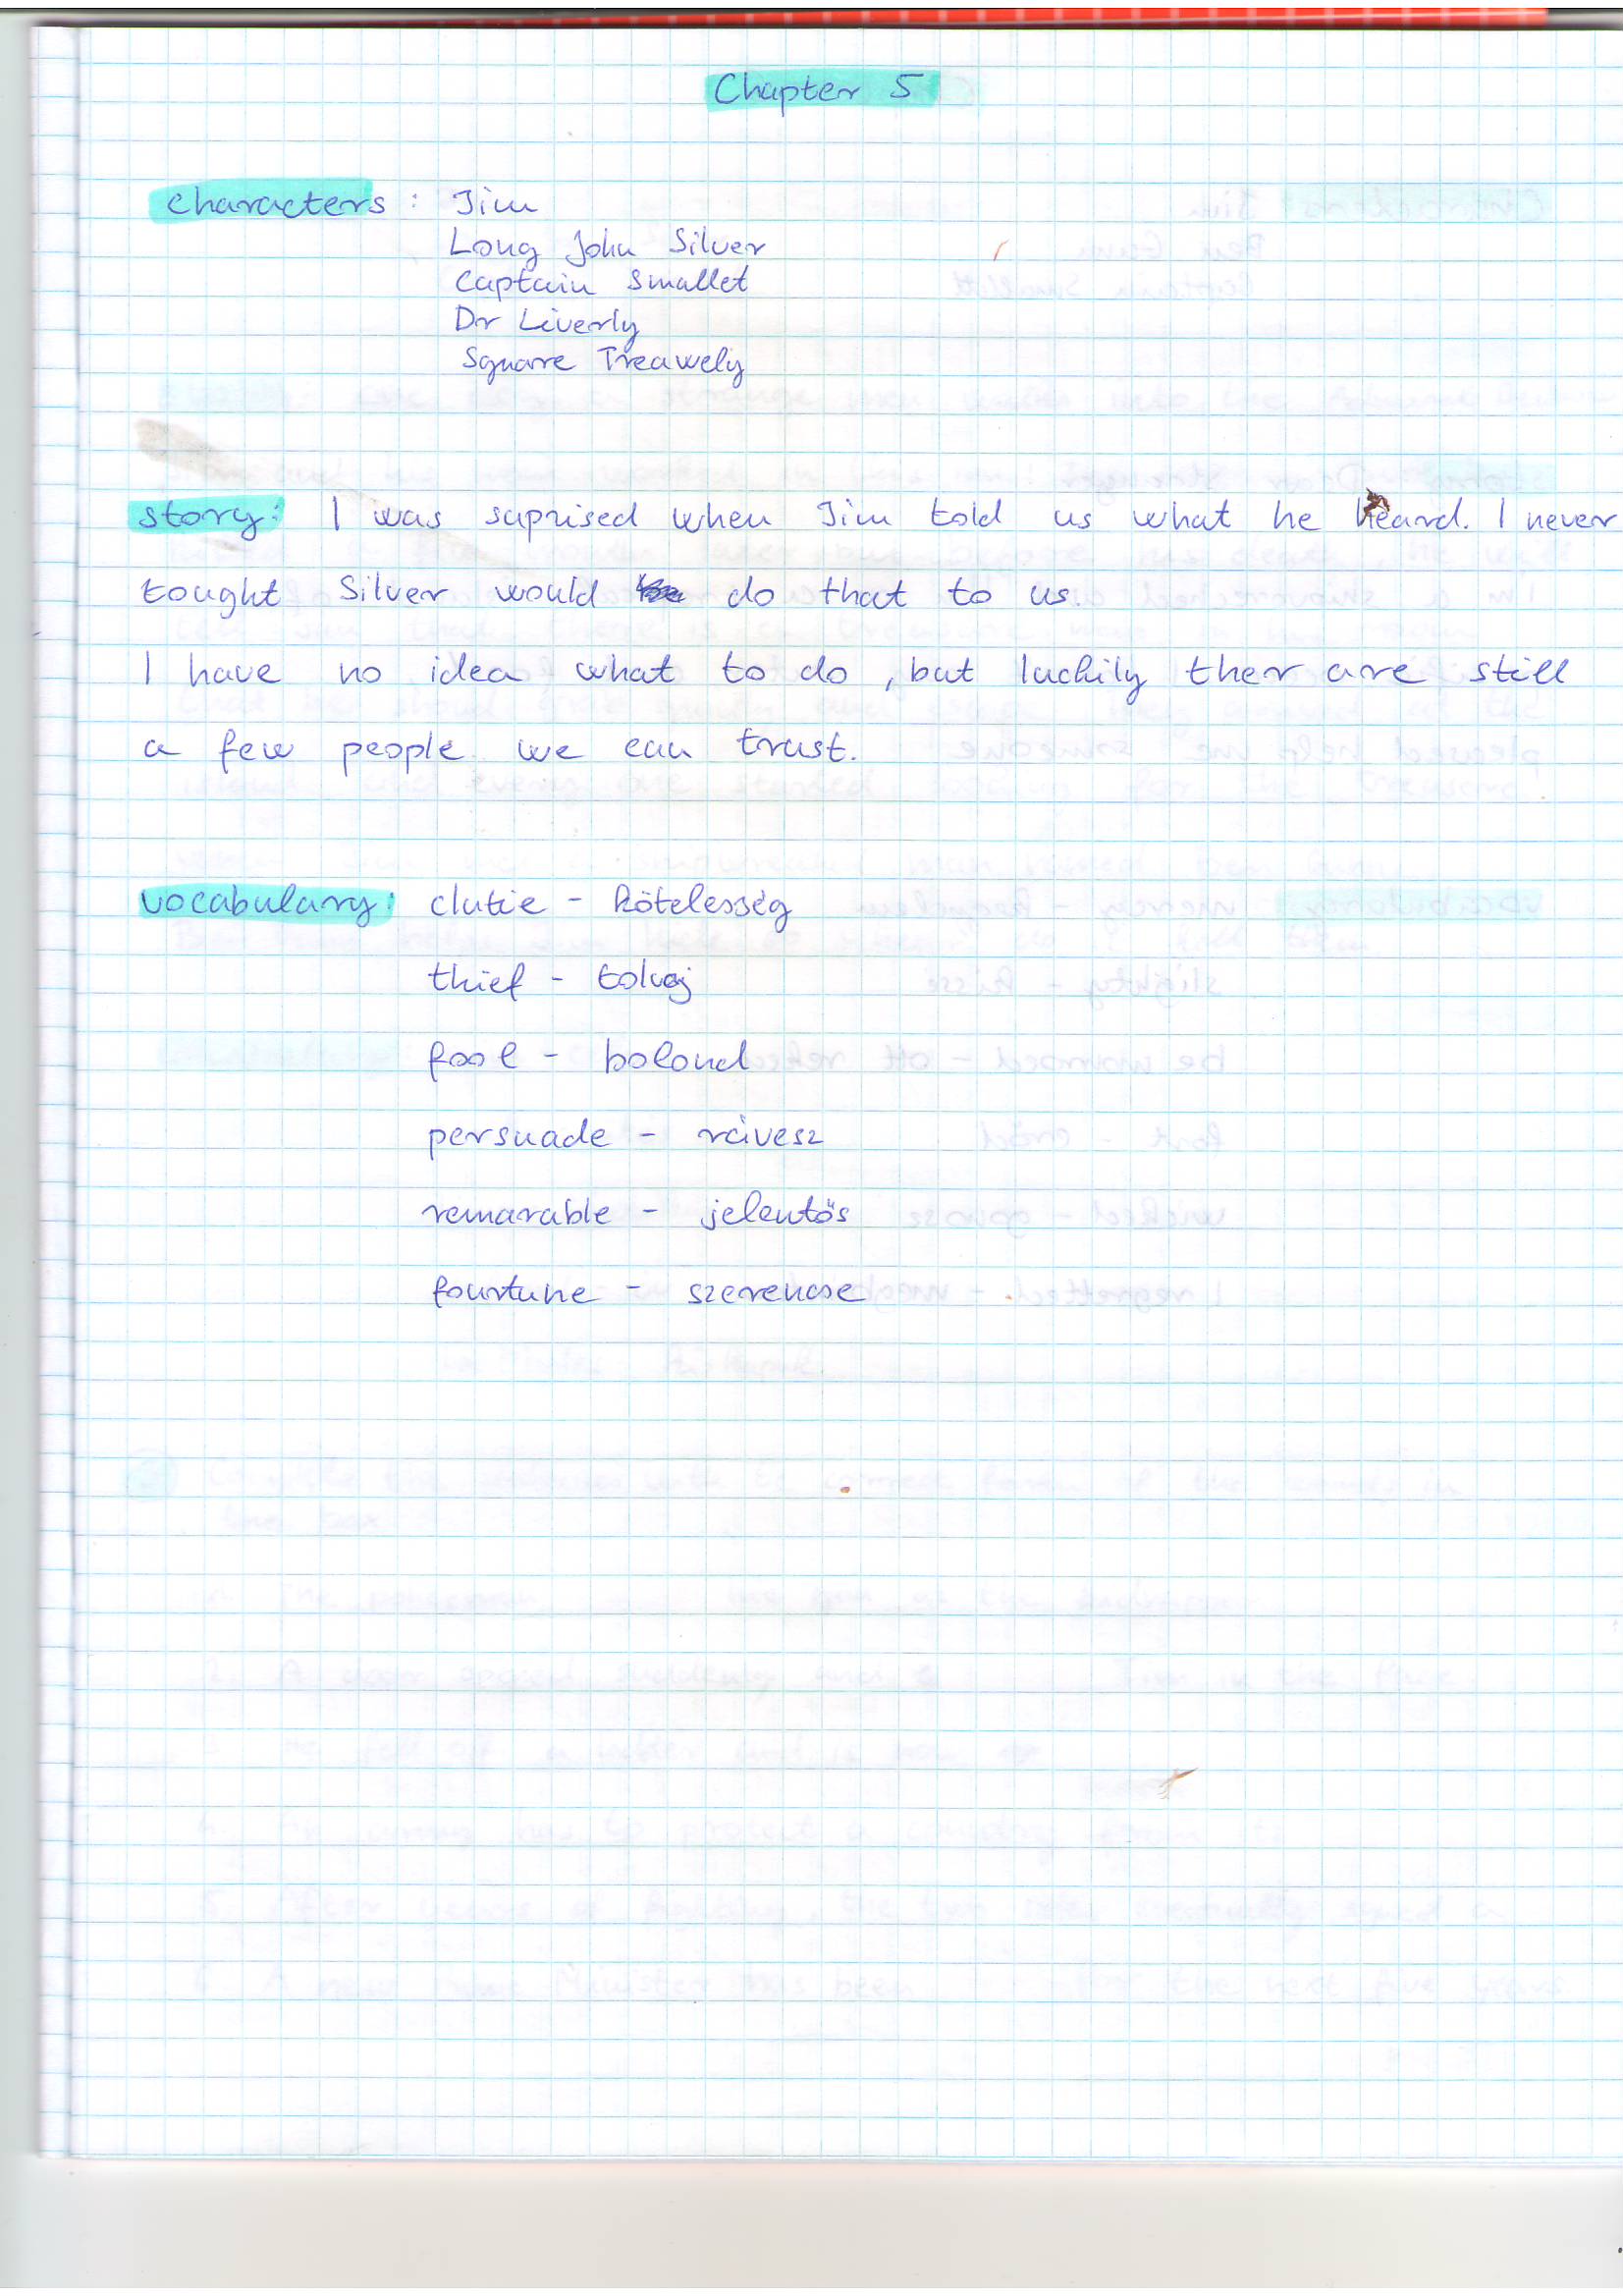 Chapter 5
characters: Jim
Long John Silver
Captain Smallet
Dr Liverly
Square Treawely
story: I was suprised when Jim told us what he heard. I never
tought Silver would do that to us.
I have no idea what to do, but luckily ther are still
a few people we can trust.
vocabulary: clutie - kötelesség
thief - tolvaj
fool - bolond
persuade - rávesz
remarable - jelentős
fourtune - szerencse